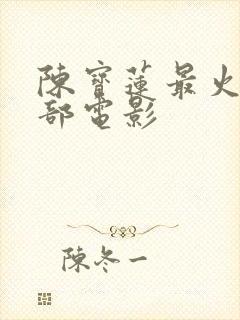 陳寶蓮最火
部電影
陳冬一